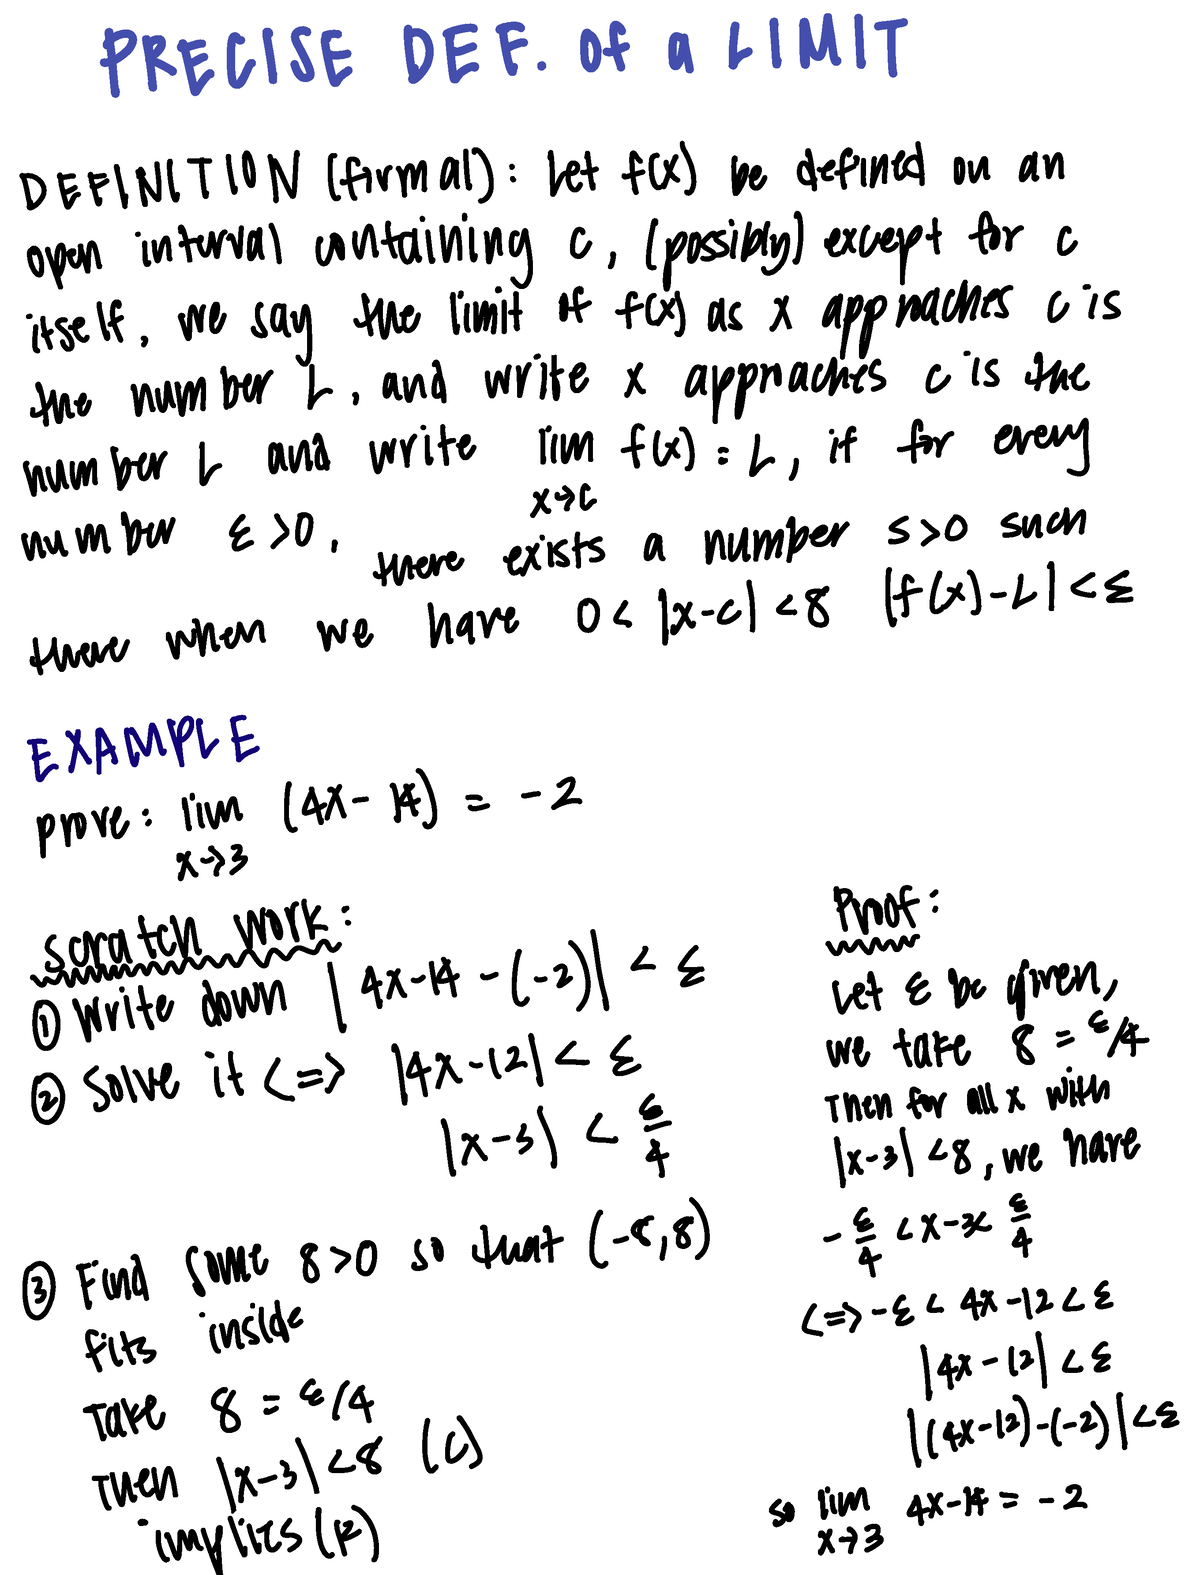 PRECISE DEF. of a LIMIT
DEFINITION (formal): Let f(x) be defined on an
open interval containing c, (possibly) except for c
itself, we say the limit of f(x) as x approaches c is
the number L, and write x approaches c is the
number L and write lim f(x) = L, if for every
x→c
number ε >0, there exists a number S>0 such
there when we have 0 < |x-c| < 8 |f(x)-L| < ε
EXAMPLE
prove: lim (4x- 14) = -2
x→3
scratch work:
① Write down | 4x-14 -(-2)| < ε
② Solve it <=> |4x-12| < ε
|x-3| < ε/4
③ Find some 8>0 so that (-8,8)
fits inside
Take 8 = ε/4
Then |x-3| <8 (c)
implies (k)
Proof:
Let ε be given,
we take 8 = ε/4
Then for all x with
|x-3| <8, we have
- ε/4 < x-3< ε/4
<=> -ε < 4x -12 < ε
|4x - 12| < ε
|(4x-12)-(-2)| <ε
so lim 4x-14 = -2
x→3